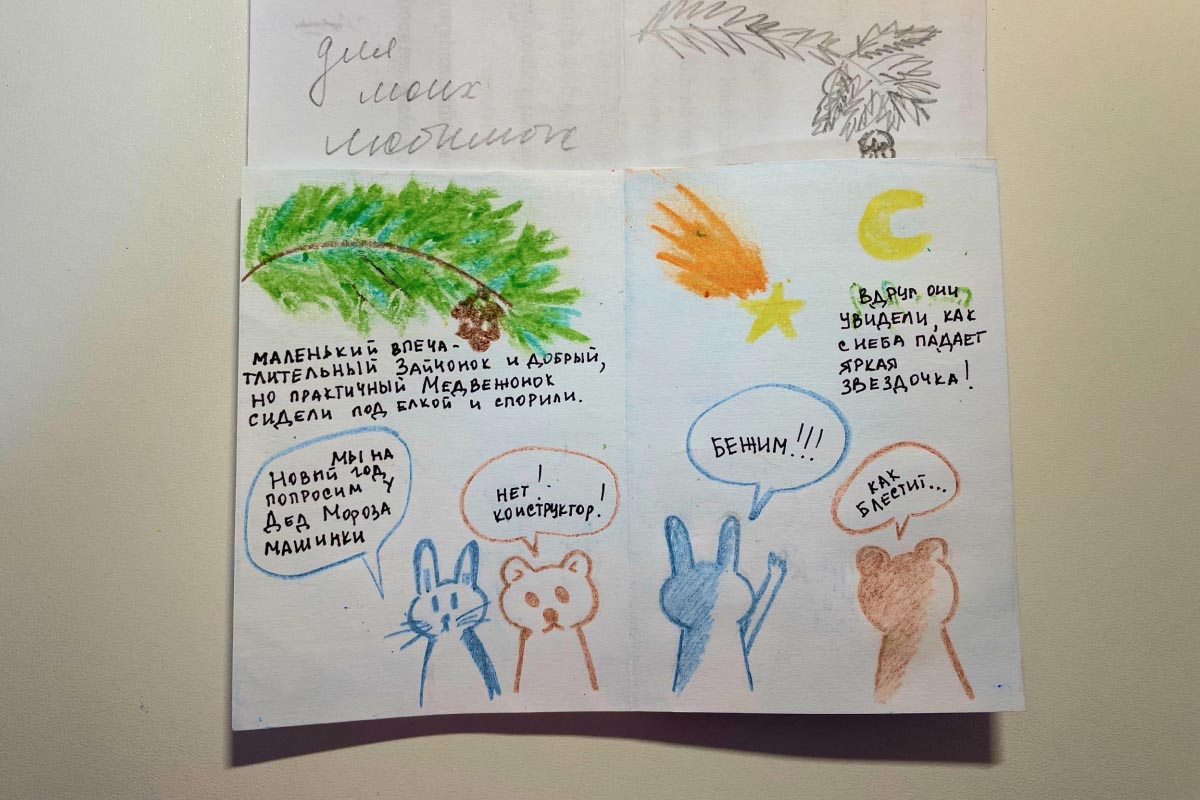 для
моих
любимок
МАЛЕНЬКИЙ ВПЕЧА-
ТЛИТЕЛЬНЫЙ ЗАЙЧОНОК И ДОБРЫЙ,
НО ПРАКТИЧНЫЙ МЕДВЕЖОНОК
СИДЕЛИ ПОД ЁЛКОЙ И СПОРИЛИ.
МЫ НА
НОВЫЙ ГОД
ПОПРОСИМ У
ДЕД МОРОЗА
МАШИНКИ
НЕТ!
КОНСТРУКТОР!
ВДРУГ ОНИ
УВИДЕЛИ, КАК
С НЕБА ПАДАЕТ
ЯРКАЯ
ЗВЕЗДОЧКА!
БЕЖИМ!!!
КАК
БЛЕСТИТ...